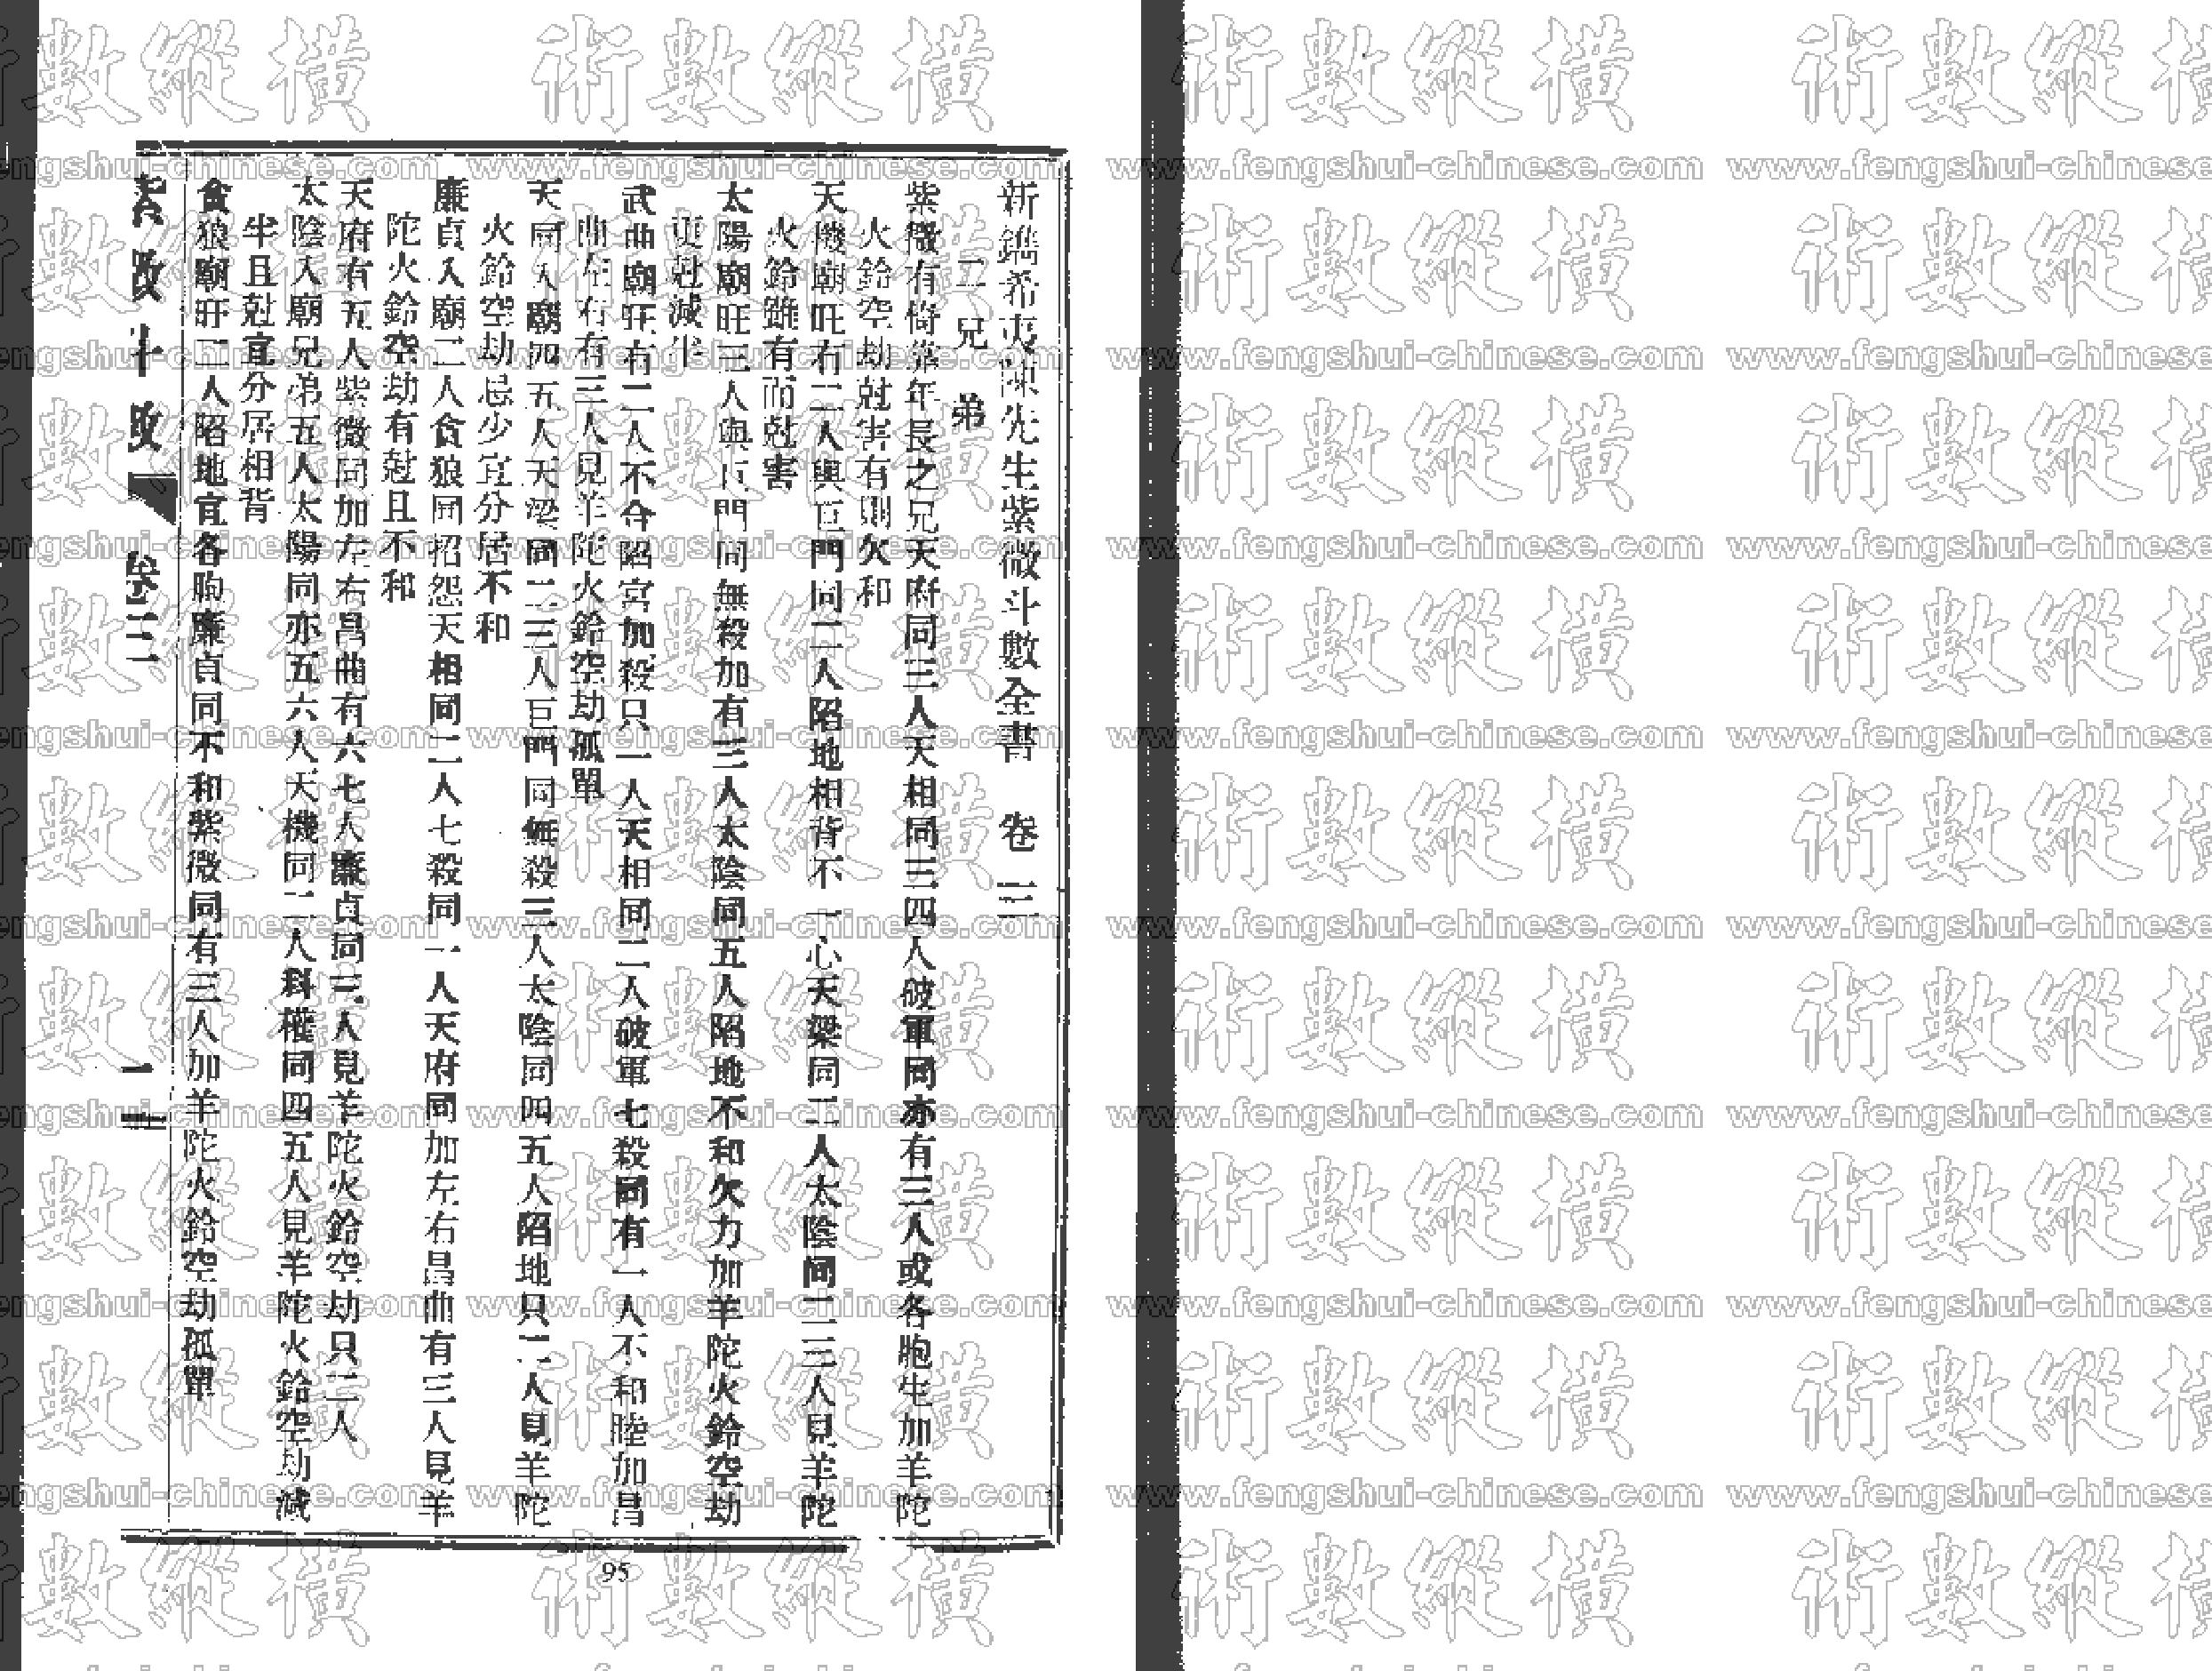 新鐫希夷陳先生紫微斗數全書　卷三
二兄　弟
紫微有倚靠年長之兄天府同三人天相同三四人破軍同亦有三人或各胞生加羊陀
火鈴空劫尅害有則欠和
天機廟旺右二人與巨門同二人陷地相背不一心天梁同二人太陰同二三人見羊陀
火鈴雖有而尅害
太陽廟旺三人與巨門同無殺加有三人太陰同五人陷地不和欠力加羊陀火鈴空劫
更尅減半
武曲廟旺有二人不合陷宮加殺只一人天相同二人破軍七殺同有一人不和睦加昌
曲左右有三人見羊陀火鈴空劫孤單
天同入廟四五人天梁同二三人巨門同無殺三人太陰同四五人陷地只二人見羊陀
火鈴空劫忌少宜分居不和
廉貞入廟二人貪狼同招怨天相同二人七殺同一人天府同加左右昌曲有三人見羊
陀火鈴空劫有尅且不和
天府有五人紫微同加左右昌曲有六七人廉貞同三人見羊陀火鈴空劫只二人
太陰入廟兄弟五人太陽同亦五六人天機同二人科權同四五人見羊陀火鈴空劫減
半且尅宜分居相背
貪狼廟旺二人陷地宜各胞廉貞同不和紫微同有三人加羊陀火鈴空劫孤單
卷三
二
95
術數縱橫
www.fengshui-chinese.com